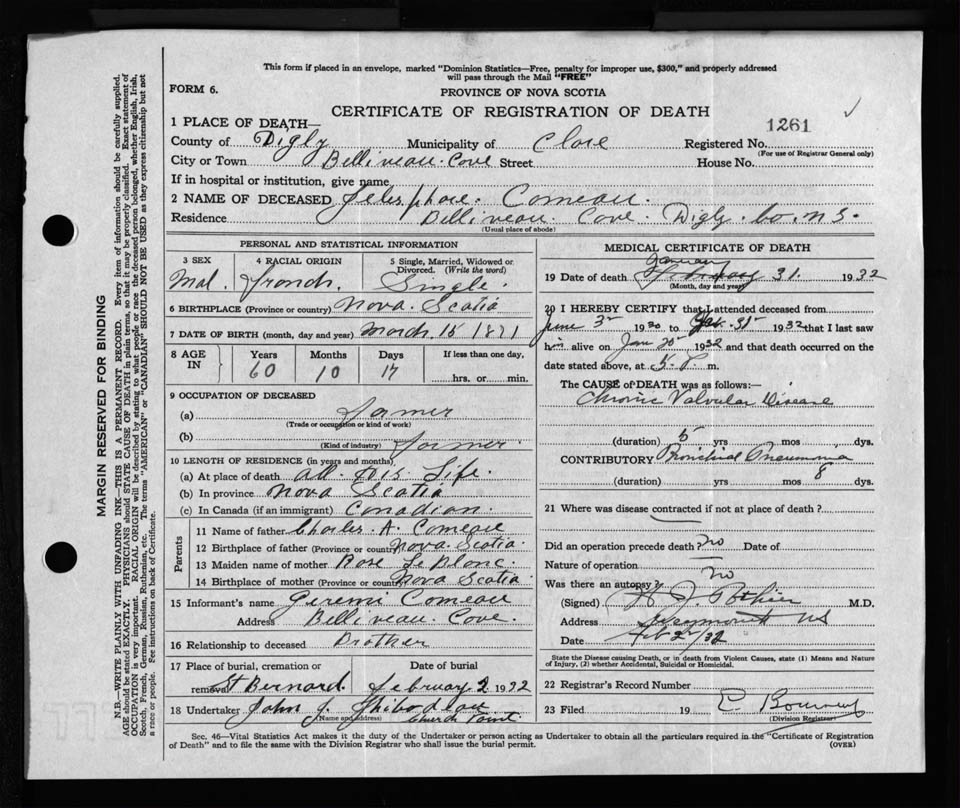 This form if placed in an envelope, marked "Dominion Statistics—Free, penalty for improper use, $300," and properly addressed
will pass through the Mail "FREE"
FORM 6.
PROVINCE OF NOVA SCOTIA
CERTIFICATE OF REGISTRATION OF DEATH
1261
1 PLACE OF DEATH—
County of Digby Municipality of Clare Registered No.
(For use of Registrar General only)
City or Town Belliveau Cove Street House No.
If in hospital or institution, give name
2 NAME OF DECEASED Telesphore Comeau.
Residence Belliveau Cove. Digby Co. N.S.
(Usual place of abode)
PERSONAL AND STATISTICAL INFORMATION
3 SEX
Mal.
4 RACIAL ORIGIN
French.
5 Single, Married, Widowed or
Divorced. (Write the word)
Single.
6 BIRTHPLACE (Province or country) Nova Scotia
7 DATE OF BIRTH (month, day and year) March 15 1871
8 AGE IN
Years Months Days If less than one day,
60 10 17 hrs. or min.
9 OCCUPATION OF DECEASED
(a) Farmer
(Trade or occupation or kind of work)
(b) Farmer.
(Kind of industry)
10 LENGTH OF RESIDENCE (in years and months)
(a) At place of death all his Life.
(b) In province Nova Scotia
(c) In Canada (if an immigrant) Canadian.
Parents
11 Name of father Charles A. Comeau
12 Birthplace of father (Province or country) Nova Scotia.
13 Maiden name of mother Rose Le Blanc.
14 Birthplace of mother (Province or country) Nova Scotia.
15 Informant's name Jeremi Comeau
Address Belliveau Cove.
16 Relationship to deceased Brother
17 Place of burial, cremation or
removal St Bernard.
Date of burial
February 2 1932
18 Undertaker John J. Thibodeau
(Name and address) Church Point
MEDICAL CERTIFICATE OF DEATH
January
19 Date of death February 31. 1932
(Month, day and year)
20 I HEREBY CERTIFY that I attended deceased from
June 3 1930 to Jan. 31 1932 that I last saw
him alive on Jan 25 1932 and that death occurred on the
date stated above, at 5. P. m.
The CAUSE of DEATH was as follows:—
Chronic Valvular Disease
(duration) 5 yrs mos dys.
CONTRIBUTORY Bronchial Pneumonia
(duration) yrs mos 8 dys.
21 Where was disease contracted if not at place of death?
Did an operation precede death? No Date of
Nature of operation
Was there an autopsy? No
(Signed) Pothier M.D.
Address Weymouth NS
Date Feb 2/32
State the Disease causing Death, or in death from Violent Causes, state (1) Means and Nature
of Injury, (2) whether Accidental, Suicidal or Homicidal.
22 Registrar's Record Number
23 Filed 19
(Division Registrar)
Sec. 46—Vital Statistics Act makes it the duty of the Undertaker or person acting as Undertaker to obtain all the particulars required in the "Certificate of Registration
of Death" and to file the same with the Division Registrar who shall issue the burial permit.
(OVER)
MARGIN RESERVED FOR BINDING
N.B.—WRITE PLAINLY WITH UNFADING INK—THIS IS A PERMANENT RECORD. Every item of information should be carefully supplied.
AGE should be stated EXACTLY. PHYSICIANS should STATE CAUSE OF DEATH in plain terms, so that it may be properly classified. Exact statement of
OCCUPATION is very important. RACIAL ORIGIN will be described by stating to what people or race the deceased person belonged, whether English, Irish,
Scotch, French, German, Russian, Ruthenian, etc. The terms "AMERICAN" or "CANADIAN" SHOULD NOT BE USED as they express citizenship but not
a race or people. See instructions on back of Certificate.